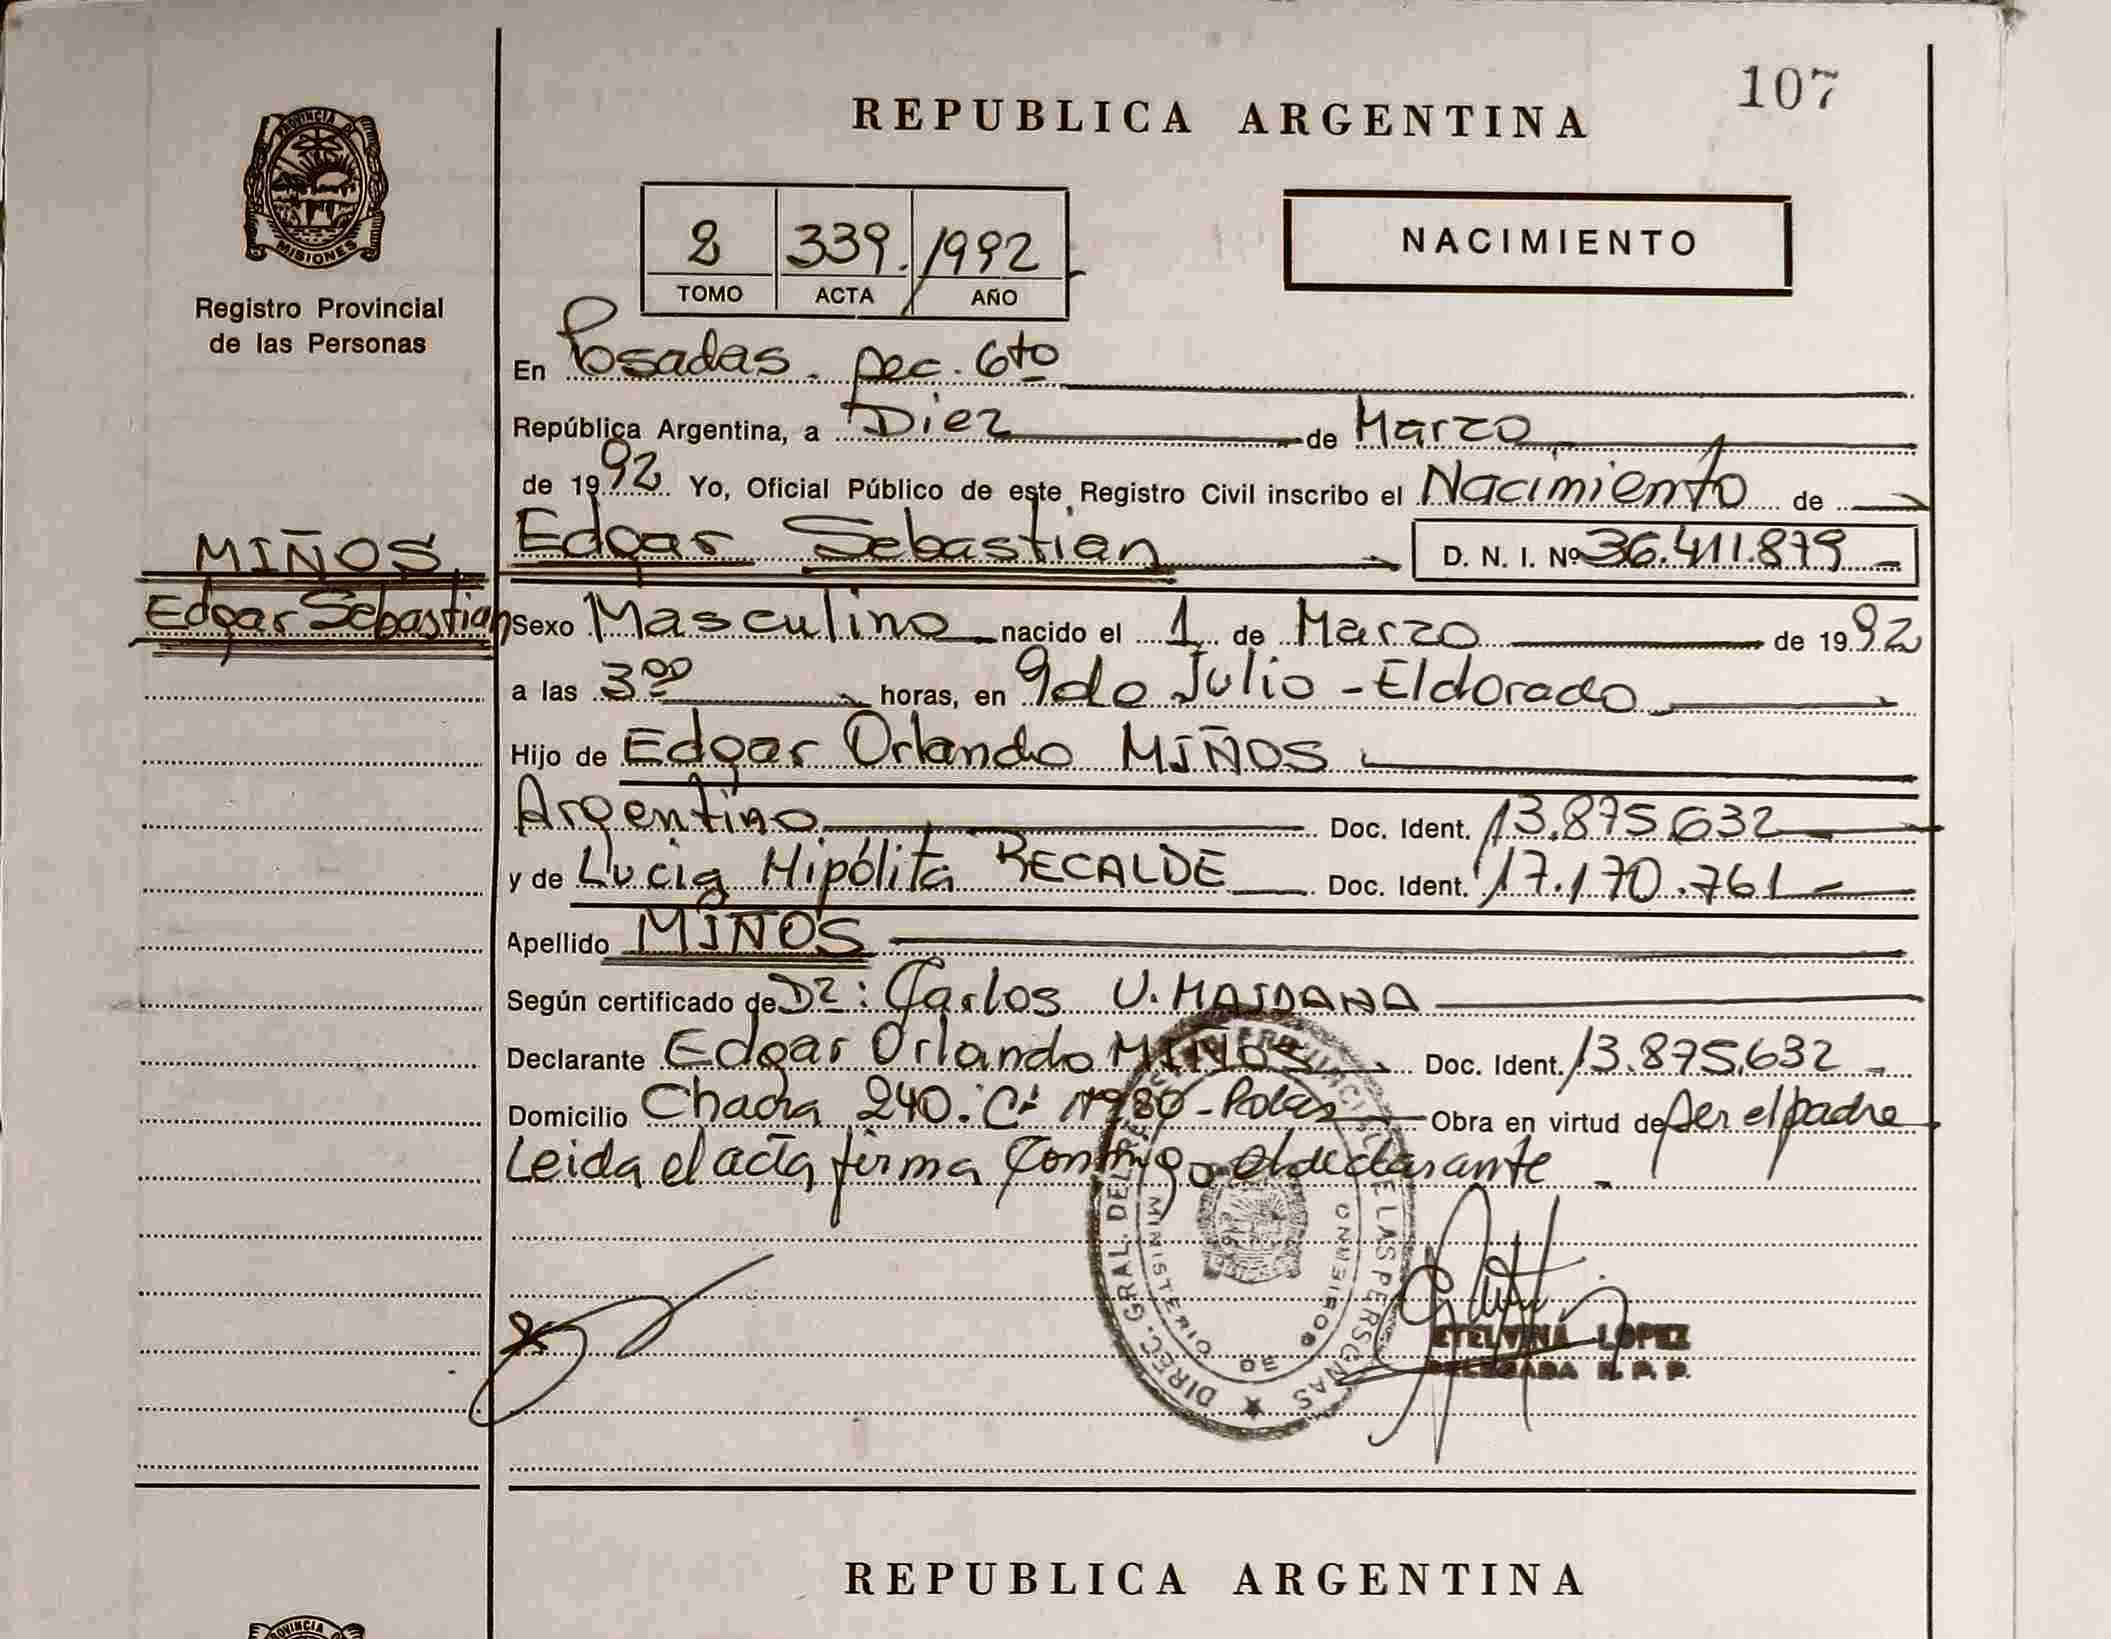 107
REPUBLICA ARGENTINA
PROVINCIA DE
MISIONES
Registro Provincial
de las Personas
2 339. 1992
TOMO ACTA AÑO
NACIMIENTO
En Posadas. Sec. 6to
República Argentina, a Diez de Marzo
de 1992 Yo, Oficial Público de este Registro Civil inscribo el Nacimiento de
MIÑOS
Edgar Sebastian D. N. I. Nº 36.411.879
Edgar Sebastian
Sexo Masculino nacido el 1 de Marzo de 1992
a las 3 00 horas, en 9 de Julio - Eldorado
Hijo de Edgar Orlando MIÑOS
Argentino Doc. Ident. 13.875.632
y de Lucia Hipólita RECALDE Doc. Ident. 17.170.761
Apellido MIÑOS
Según certificado de Dr: Carlos U. MAIDANA
Declarante Edgar Orlando MIÑOS Doc. Ident. 13.875.632
Domicilio Chacra 240. Cª Nº 80 - Pdas Obra en virtud de Ser el padre
Leida el acta firma Conmigo el declarante
DIREC. GRAL. DEL REG. PROVINCIAL DE LAS PERSONAS
MINISTERIO DE GOBIERNO
ETELVINA LOPEZ
DELEGADA R. P. P.
REPUBLICA ARGENTINA
PROVINCIA